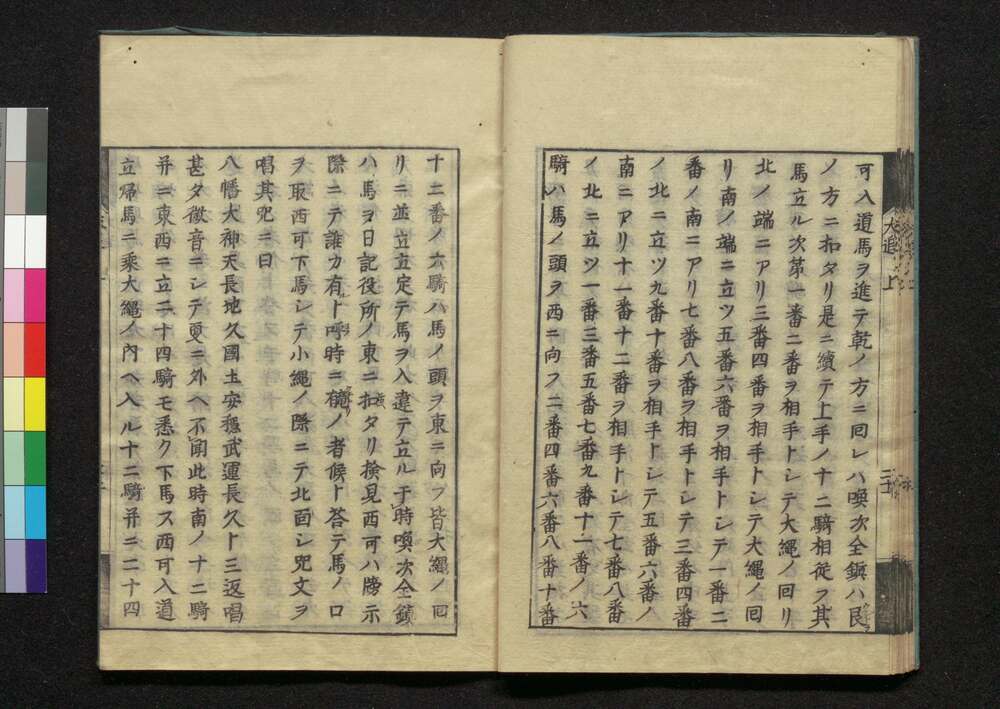 可入道馬ヲ進テ乾ノ方ニ回レハ喚次全鎭ハ艮
ノ方ニ扣タリ是ニ續テ上手ノ十二騎相従フ其
馬立ル次第一番二番ヲ相手トシテ大縄ノ回リ
北ノ端ニアリ三番四番ヲ相手トシテ大縄ノ回
リ南ノ端ニ立ツ五番六番ヲ相手トシテ一番二
番ノ南ニアリ七番八番ヲ相手トシテ三番四番
ノ北ニ立ツ九番十番ヲ相手トシテ五番六番ノ
南ニアリ十一番十二番ヲ相手トシテ七番八番
ノ北ニ立ツ一番三番五番七番九番十一番ノ六
騎ハ馬ノ頭ヲ西ニ向フ二番四番六番八番十番
十二番ノ六騎ハ馬ノ頭ヲ東ニ向フ皆大縄ノ回
リニ並立立定テ馬ヲ入違テ立ル于時喚次全鎭
ハ馬ヲ日記役所ノ東ニ扣タリ検見西可ハ牓示
際ニテ誰カ有ト呼時ニ ノ者候ト答テ馬ノ口
ヲ取西可下馬シテ小縄ノ際ニテ北面シ呪文ヲ
唱其呪ニ曰
八幡大神天長地久國土安穏武運長久ト三返唱
甚タ微音ニシテ更ニ外ヘ不聞此時南ノ十二騎
并ニ東西ニ立二十四騎モ悉ク下馬ス西可入道
立帰馬ニ乘大縄ノ内ヘ入ル十二騎并ニ二十四
犬追 上